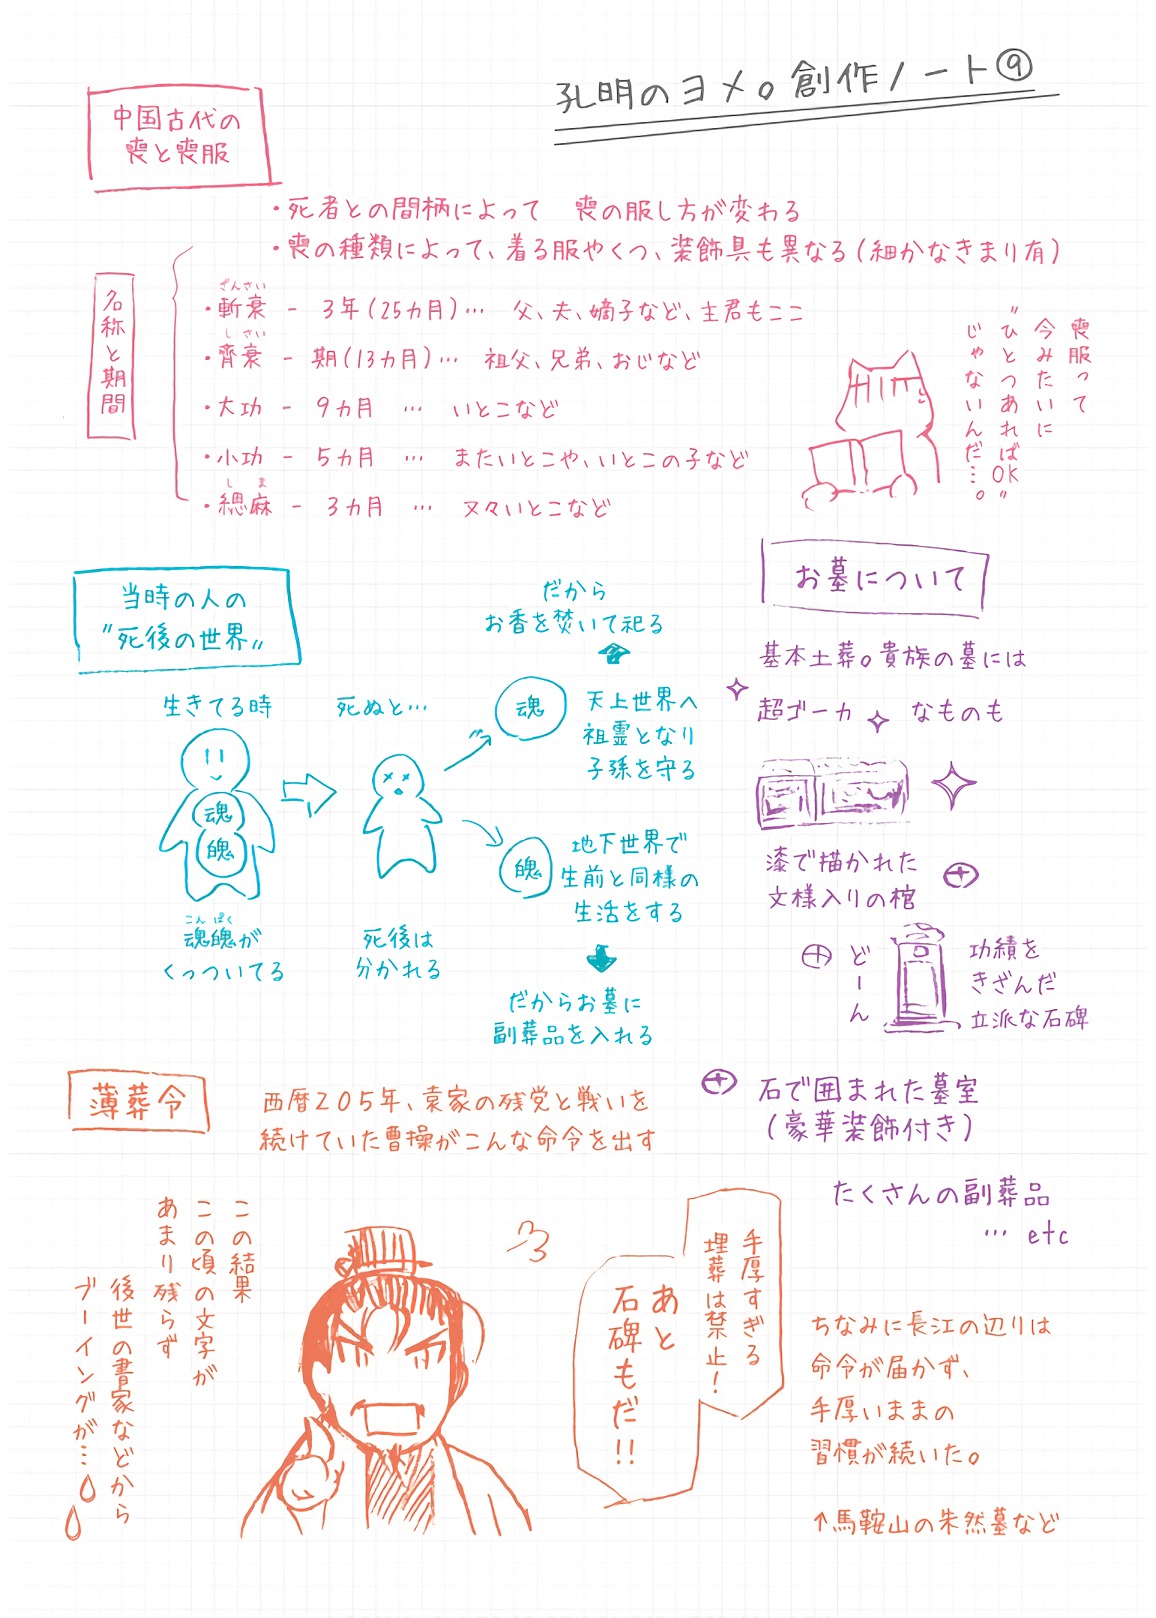 孔明のヨメ。創作ノート⑨
中国古代の
喪と喪服
・死者との間柄によって 喪の服し方が変わる
・喪の種類によって、着る服やくつ、装飾具も異なる(細かなきまり有)
名称と期間
ざんさい
・斬衰 - 3年(25ヵ月)… 父、夫、嫡子など、主君もここ
しさい
・齊衰 - 期(13ヵ月)… 祖父、兄弟、おじなど
・大功 - 9ヵ月 … いとこなど
・小功 - 5ヵ月 … またいとこや、いとこの子など
しま
・緦麻 - 3ヵ月 … 又々いとこなど
喪服って
今みたいに
"ひとつあればOK"
じゃないんだ…。
当時の人の
"死後の世界"
生きてる時
魂
魄
こんぱく
魂魄が
くっついてる
死ぬと…
死後は
分かれる
だから
お香を焚いて祀る
魂
天上世界へ
祖霊となり
子孫を守る
魄
地下世界で
生前と同様の
生活をする
だからお墓に
副葬品を入れる
お墓について
基本土葬。貴族の墓には
超ゴーカ なものも
漆で描かれた
文様入りの棺
どーん
功績を
きざんだ
立派な石碑
石で囲まれた墓室
(豪華装飾付き)
たくさんの副葬品
… etc
薄葬令
西暦205年、袁家の残党と戦いを
続けていた曹操がこんな命令を出す
手厚すぎる
埋葬は禁止!
あと
石碑もだ!!
この結果
この頃の文字が
あまり残らず
後世の書家などから
ブーイングが…
ちなみに長江の辺りは
命令が届かず、
手厚いままの
習慣が続いた。
↑馬鞍山の朱然墓など